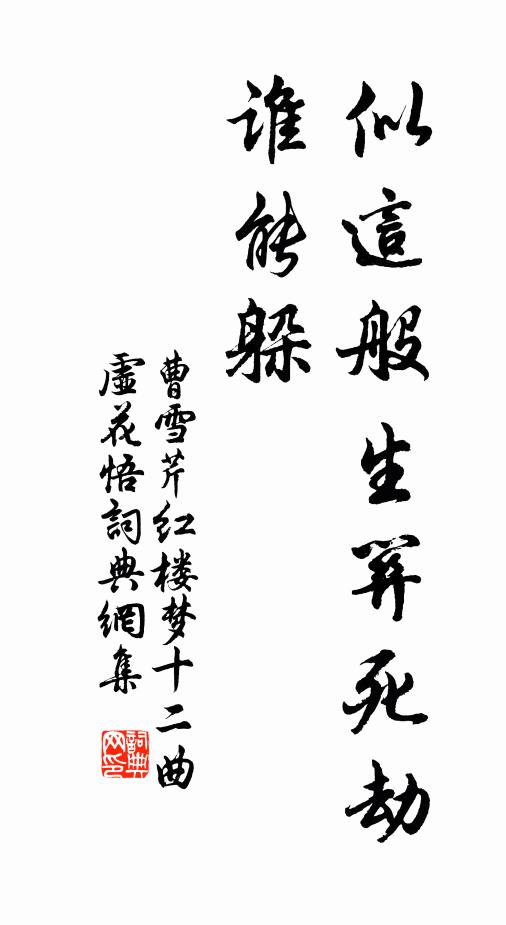 似這般生関死劫
谁能躲
曹雪芹红楼梦十二曲
虛花悟詞典網集
詞典
网印